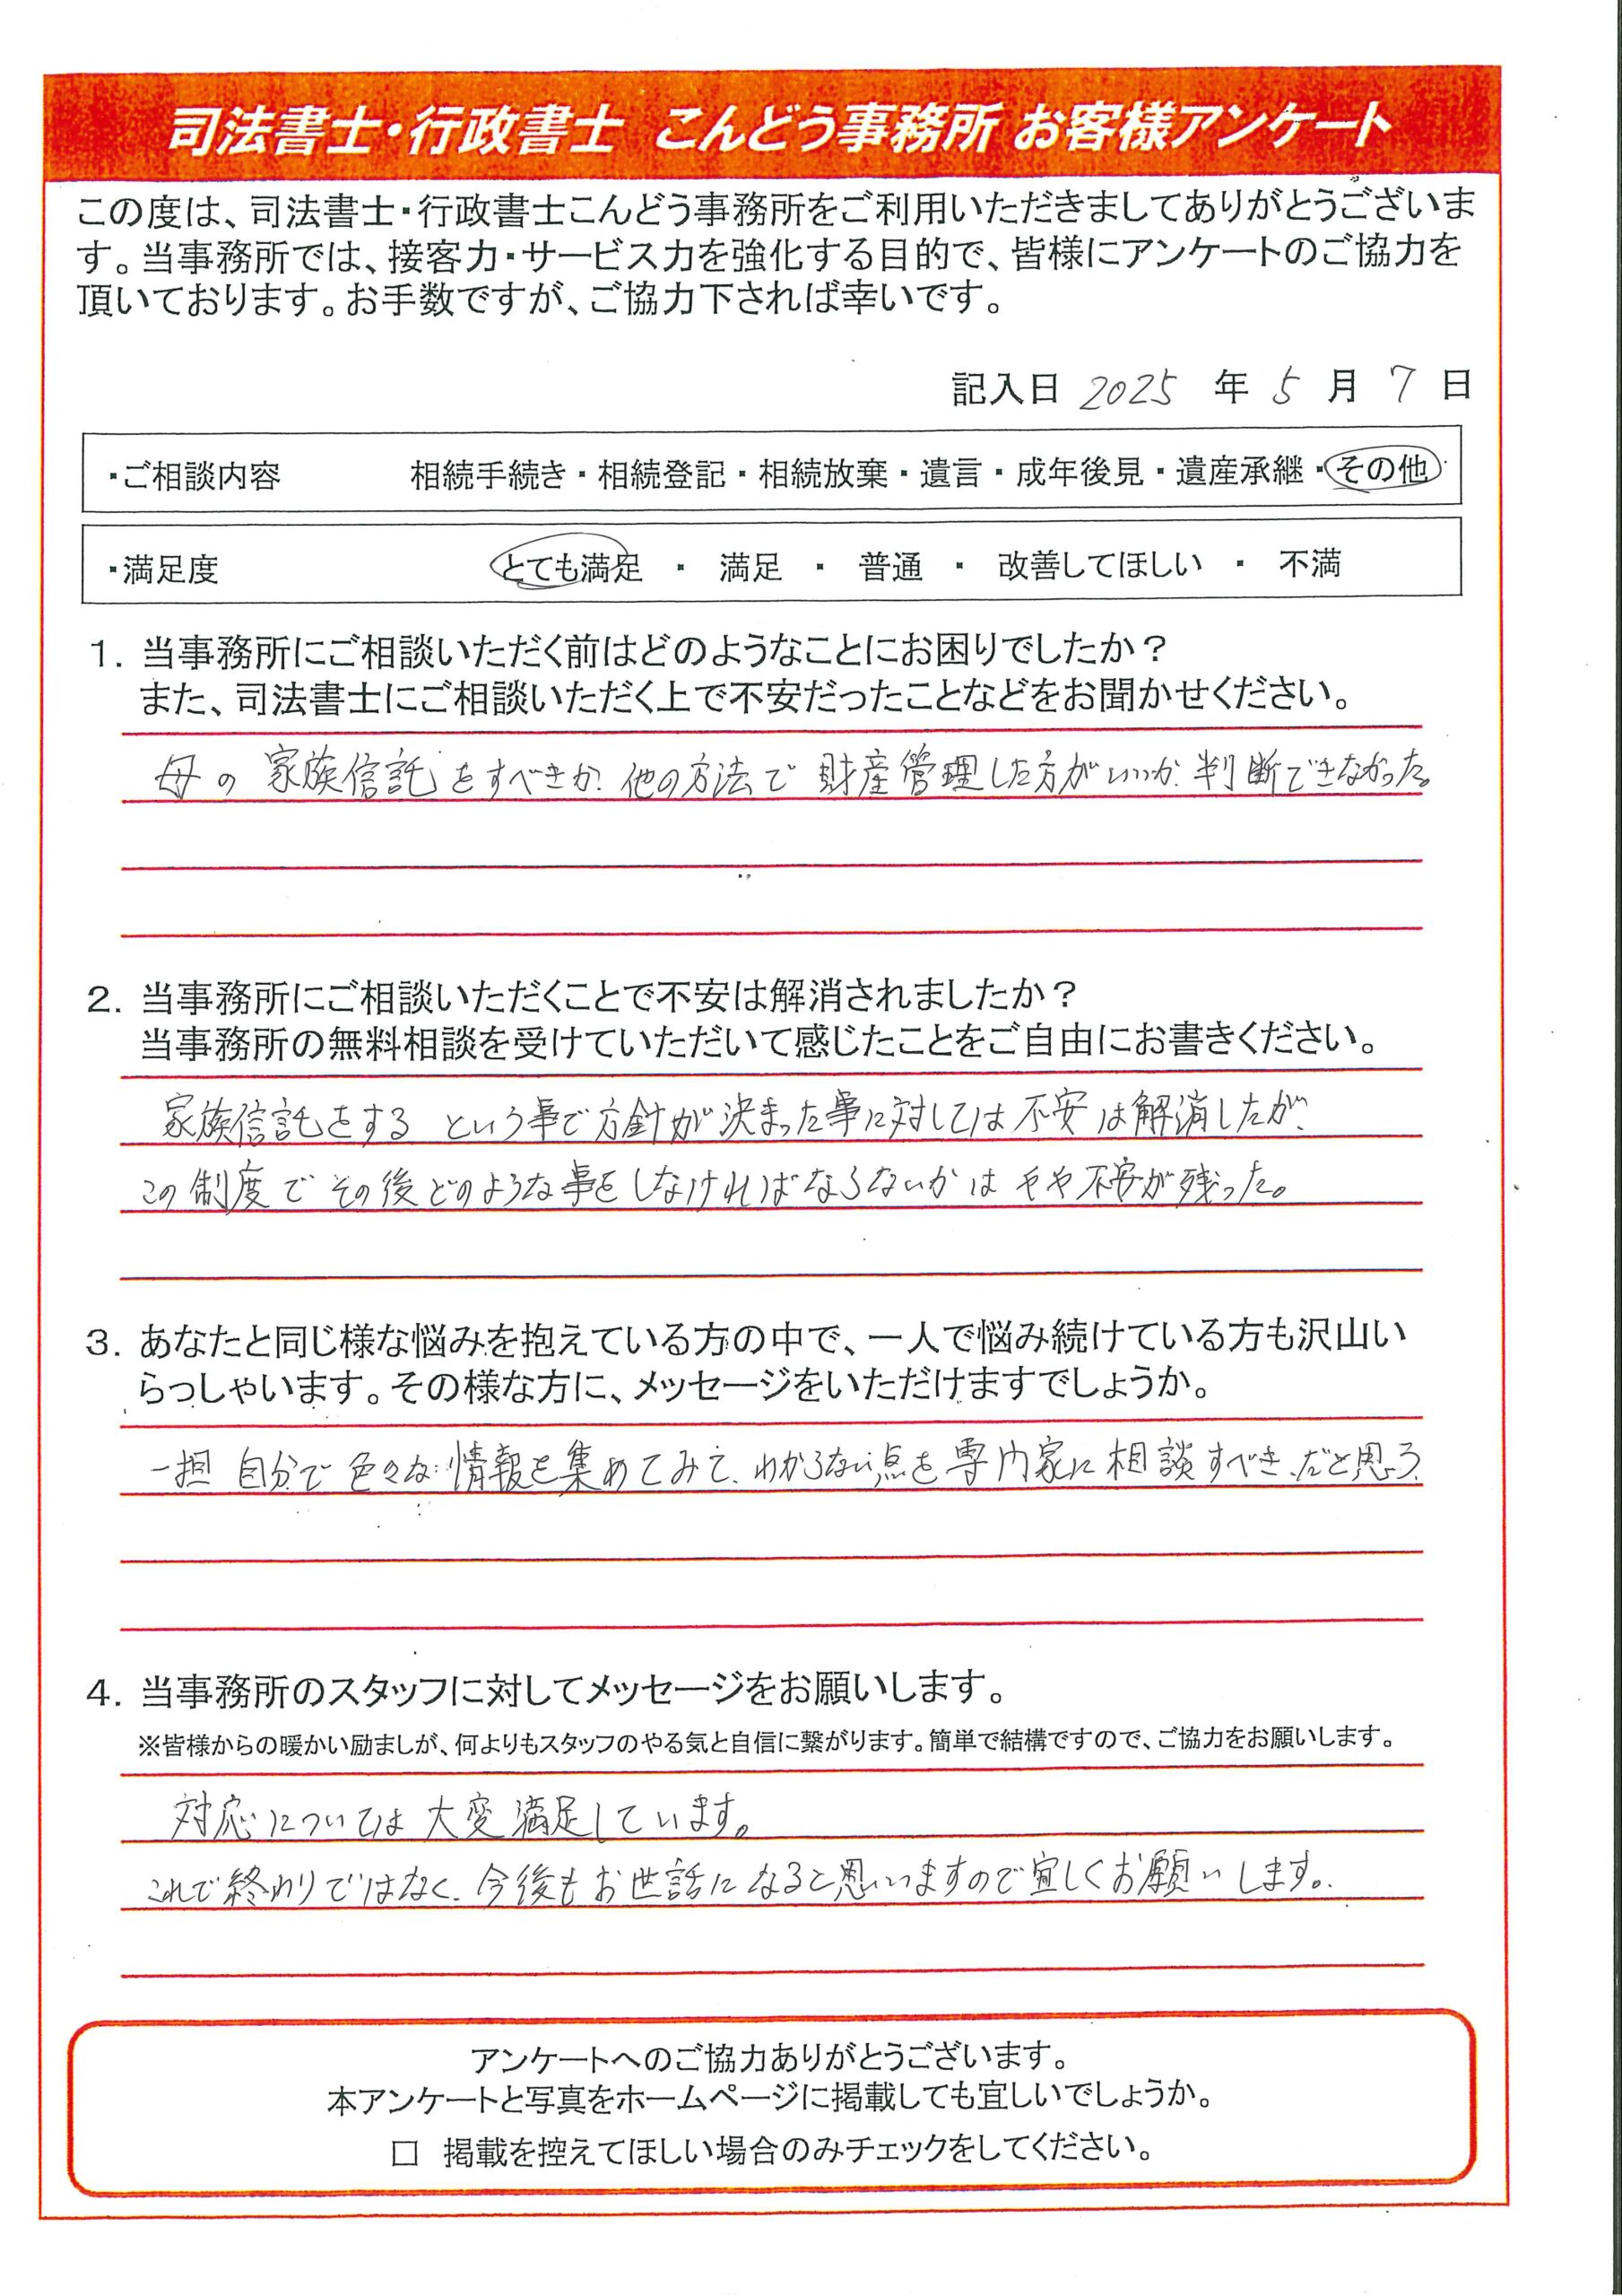 司法書士・行政書士 こんどう事務所 お客様アンケート
この度は、司法書士・行政書士こんどう事務所をご利用いただきましてありがとうございま
す。当事務所では、接客力・サービス力を強化する目的で、皆様にアンケートのご協力を
頂いております。お手数ですが、ご協力下されば幸いです。
記入日 2025 年 5 月 7 日
・ご相談内容 相続手続き・相続登記・相続放棄・遺言・成年後見・遺産承継・その他
・満足度 とても満足 ・ 満足 ・ 普通 ・ 改善してほしい ・ 不満
1. 当事務所にご相談いただく前はどのようなことにお困りでしたか？
また、司法書士にご相談いただく上で不安だったことなどをお聞かせください。
母の 家族信託をすべきか、他の方法で 財産管理した方がいいか、判断できなかった。
2. 当事務所にご相談いただくことで不安は解消されましたか？
当事務所の無料相談を受けていただいて感じたことをご自由にお書きください。
家族信託をする という事で方針が決まった事に対しては不安は解消したが、
この制度でその後どのような事をしなければならないかは やや不安が残った。
3. あなたと同じ様な悩みを抱えている方の中で、一人で悩み続けている方も沢山い
らっしゃいます。その様な方に、メッセージをいただけますでしょうか。
一担 自分で色々な情報を集めてみて、わからない点を専門家に相談すべきだと思う、
4. 当事務所のスタッフに対してメッセージをお願いします。
※皆様からの暖かい励ましが、何よりもスタッフのやる気と自信に繋がります。簡単で結構ですので、ご協力をお願いします。
対応については大変満足しています。
これで終わりではなく、今後もお世話になると思いますので宜しくお願いします。
アンケートへのご協力ありがとうございます。
本アンケートと写真をホームページに掲載しても宜しいでしょうか。
□ 掲載を控えてほしい場合のみチェックをしてください。